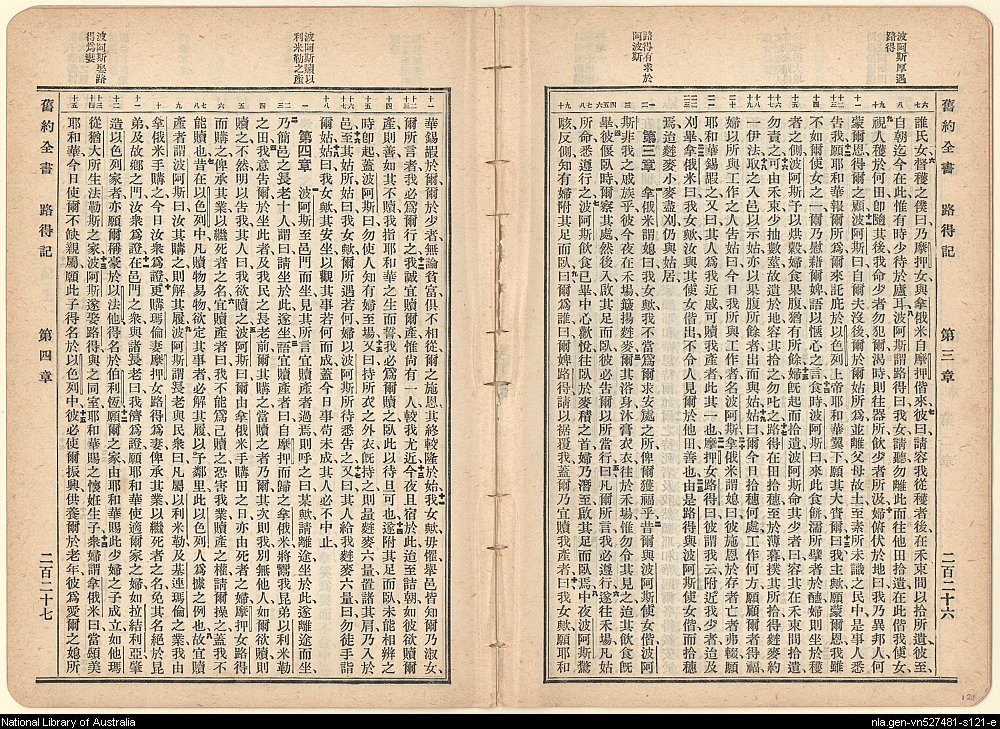 波阿斯厚遇
路得
路得有求於
阿波斯
舊約全書 路得記 第三章 二百二十六
誰氏女督穫之僕曰乃摩押女與拿俄米自摩押偕來彼曰請容我從穫者後在禾束間一一以拾所遺彼至
自朝迄今在此惟有時少待於廬耳波阿斯謂路得曰我女請聽勿離此而往他田拾遺在此偕我使女
視人穫於何田卽隨其後我命少者勿犯爾渴時則往器所飲少者所汲婦俯伏於地曰我乃異邦人何
蒙爾恩得爾之顧波阿斯曰自爾夫沒後爾於姑所爲並離父母故土至素所未識之民中是事人悉
告我願耶和華報爾所行爾來託庇於以色列上帝耶和華翼下願其大賚爾曰我主歟願蒙爾恩我雖
不如爾使女之一爾乃慰藉爾婢語以愜心之言食時波阿斯曰來此食餅濡所擘者於醯婦則坐於穫
者之側波阿斯予以烘穀婦食果腹猶有所餘婦旣起而拾遺波阿斯命其少者曰容其在禾束間拾遺
勿責之可由禾束少抽數莖故遺於地容其拾之勿叱之路得在田拾穗至於薄暮撲其所拾得麰麥約
一伊法取之入邑以示姑亦以果腹所餘者出而與姑姑曰爾今日拾穗何處工作何方願顧爾者得福
婦以所與工作之人告姑曰今日我所與工作者名波阿斯拿俄米謂媳曰彼施恩於存者亡者弗輟願
耶和華錫嘏之又曰其人爲我近戚可贖我產者此其一也摩押女路得曰彼謂我云附近我少者迨及
刈畢拿俄米曰我女歟汝與其使女偕出不令人見爾於他田善也由是路得與波阿斯使女偕而拾穗
焉迨麰麥小麥盡刈仍與姑居
第三章 拿俄米謂媳曰我女歟我不當爲爾求安處之所俾爾獲福乎昔爾與波阿斯使女偕波阿
斯非我之戚族乎彼今夜在禾場簸揚麰麥爾其浴身沐膏衣衣往於禾場惟勿令其見之迨其飲食旣
畢彼偃臥時爾察其處然後入啟其足而臥彼必告爾以所當爲婦曰凡爾所言我必遵行遂往禾場凡姑
所命悉遵行之波阿斯飲食旣畢中心歡欣往臥於麥積之首婦乃潛至啟其足而臥焉中夜波阿斯驚
駭反側知有婦附其足而臥曰爾爲誰曰我乃爾婢路得請以裾覆我蓋爾乃宜贖我產者曰我女歟願耶和
波阿斯贖以
利米勒之產
波阿斯娶路
得爲妻
華錫嘏於爾爾於少者無論貧富俱不相從爾之施恩其終較隆於始我女歟毋懼舉邑皆知爾乃淑女
爾所言者我必爲爾行之我誠宜贖爾產惟尙有一人較我尤近今夜且宿於此迨至詰朝如彼欲贖爾
產則善如其不贖我指耶和華之生而誓我必爲爾贖之臥此以待旦可也遂附其足而臥未能相辨之
時卽起蓋波阿斯曰勿使人知有婦至場又曰持所衣之外衣旣持之則量麰麥六量置諸其肩乃入於
邑至其姑所姑曰我女歟爾所遇若何婦以波阿斯所待悉告之又曰其人給我麰麥六量曰勿徒手詣
爾姑姑曰我女歟其安坐以觀其事若何而成蓋今日事苟未成其人必不中止
第四章 波阿斯至邑門而坐適見其所言宜贖產者過焉則呼之曰某歟請離途坐於此遂離途而坐
乃簡邑之長老十人謂曰請坐於此遂坐語宜贖產者曰自摩押而歸之拿俄米將鬻我昆弟以利米勒
之田我意告爾於坐此者及我民之長老前爾其購之當贖之者乃爾其次則我別無他人如爾欲贖則
贖之不然明以告我其人曰我欲贖之波阿斯曰爾由拿俄米手購田之日亦由死者之婦摩押女路得
而購之俾承其業以繼死者之名宜贖產者曰我不能爲己贖之恐害我業贖產之權請爾操之蓋我不
能贖也昔在以色列中凡贖物易物欲定其事者必解其履以予鄰里此以色列人爲據之例也故宜贖
產者謂波阿斯曰汝其購之則解其履波阿斯謂長老與民衆曰凡屬以利米勒及基連瑪倫之業我由
拿俄米手購之今日汝衆爲證更購瑪倫妻摩押女路得爲妻俾承其業以繼死者之名免其名絕於昆
弟及故鄉之門今日汝衆爲證在邑門之衆與諸長老曰我儕爲證願耶和華使適爾家之婦如拉結利亞肇
造以色列家者亦願爾稱豪於以法他得名於伯利恆願爾之家由耶和華賜此少婦之子成立如他瑪
從猶大所生法勒斯之家波阿斯遂娶路得與之同室耶和華賜之懷姙生子衆婦謂拿俄米曰當頌美
耶和華今日使爾不缺親屬願此子得名於以色列中彼必使爾振興供養爾於老年彼爲愛爾之媳所
舊約全書 路得記 第四章 二百二十七
121
National Library of Australia
nla.gen-vn527481-s121-e